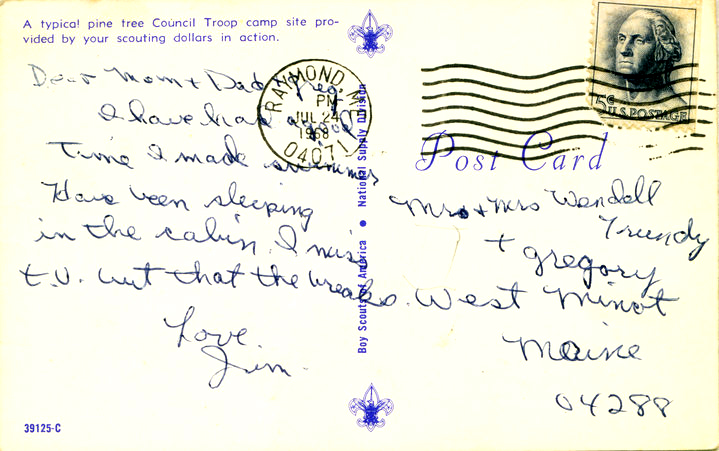 A typical pine tree Council Troop camp site pro-
vided by your scouting dollars in action.
Dear Mom + Dad, Greg,
I have had a good
Time I made swimmer
Have been sleeping
in the cabin. I miss
t.v. but that the breaks.
Love,
Jim
39125-C
Boy Scouts of America • National Supply Division
RAYMOND, M
PM
JUL 24
1968
04071
5¢
U.S. POSTAGE
Post Card
Mr + Mrs Wendell
Trundy
+ gregory
West Minot
Maine
04288